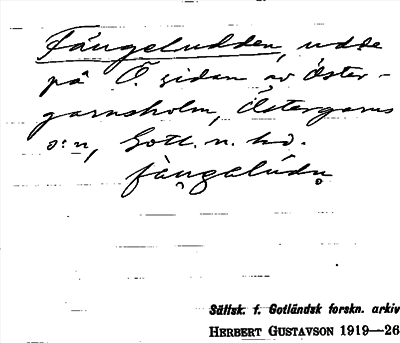 Fångeludden, udde
på Ö. sidan av Öster-
garnsholm, Östergarns
s:n, Gotl. n. hd.
fàŋgelúdn̥
Sällsk. f. Gotländsk forskn. arkiv
HERBERT GUSTAVSON 1919—26